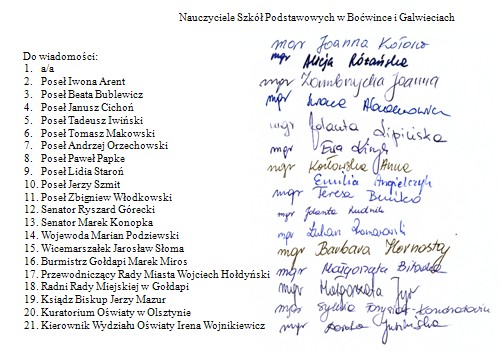 Nauczyciele Szkół Podstawowych w Boćwince i Galwieciach
mgr Joanna
mgr Alicja Różańska
Do wiadomości:
1. a/a
2. Poseł Iwona Arent
3. Poseł Beata Bublewicz
4. Poseł Janusz Cichoń
5. Poseł Tadeusz Iwiński
6. Poseł Tomasz Makowski
7. Poseł Andrzej Orzechowski
8. Poseł Paweł Papke
9. Poseł Lidia Staroń
10. Poseł Jerzy Szmit
11. Poseł Zbigniew Włodkowski
12. Senator Ryszard Górecki
13. Senator Marek Konopka
14. Wojewoda Marian Podziewski
15. Wicemarszałek Jarosław Słoma
16. Burmistrz Gołdapi Marek Miros
17. Przewodniczący Rady Miasta Wojciech Hołdyński
18. Radni Rady Miejskiej w Gołdapi
19. Ksiądz Biskup Jerzy Mazur
20. Kuratorium Oświaty w Olsztynie
21. Kierownik Wydziału Oświaty Irena Wojnikiewicz
mgr Joanna
mgr
mgr Jolanta Lipińska
mgr Ewa
mgr Kozłowska Anna
Emilia
mgr Teresa
mgr Jolanta Rudnik
mgr
mgr Barbara Hornostaj
mgr Małgorzata
mgr Małgorzata
mgr Sylwia
mgr